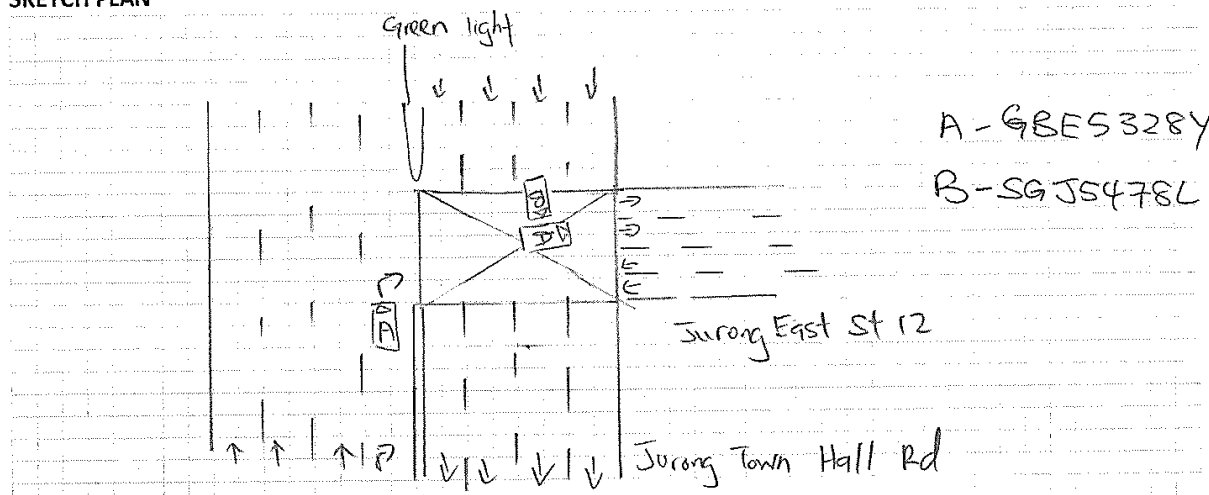 SKETCH PLAN
Green light
A - GBE5328Y
B - SGJ5478L
B
A
A
Jurong East St 12
Jurong Town Hall Rd